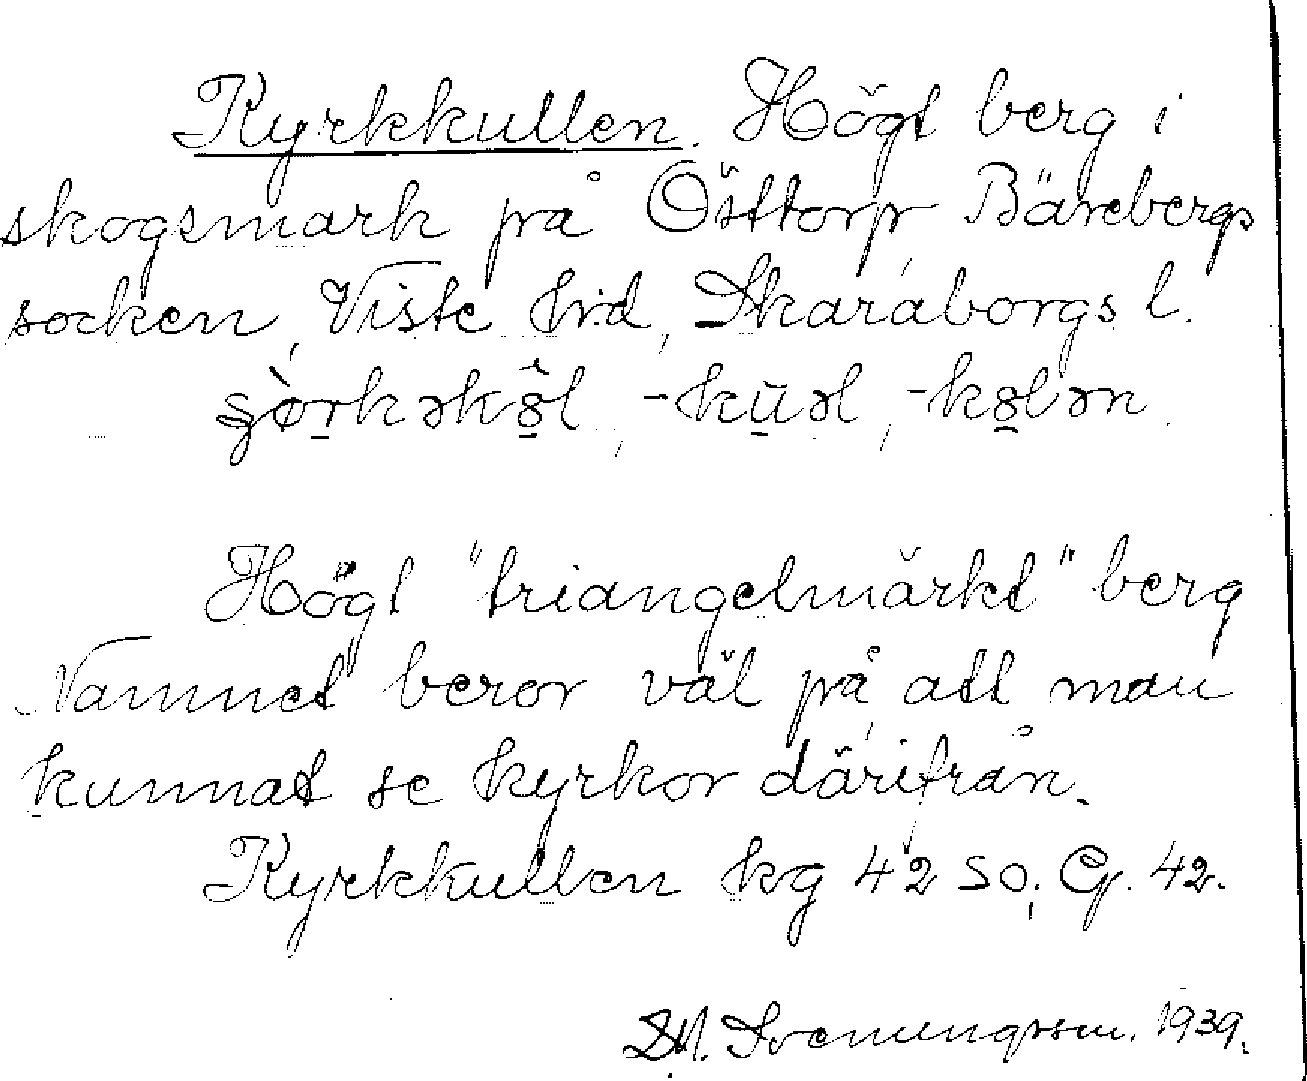 Kyrkkullen. Högt berg i
skogsmark på Östtorp, Bärebergs
socken, Viste hrd, Skaraborgs l.
-kūəl, -kolən.
Högt "triangelmärkt" berg
Namnet beror väl på, att man
kunnat se kyrkor därifrån.
Kyrkkullen kg 42 SO; G. 42.
Svenungsson. 1939.